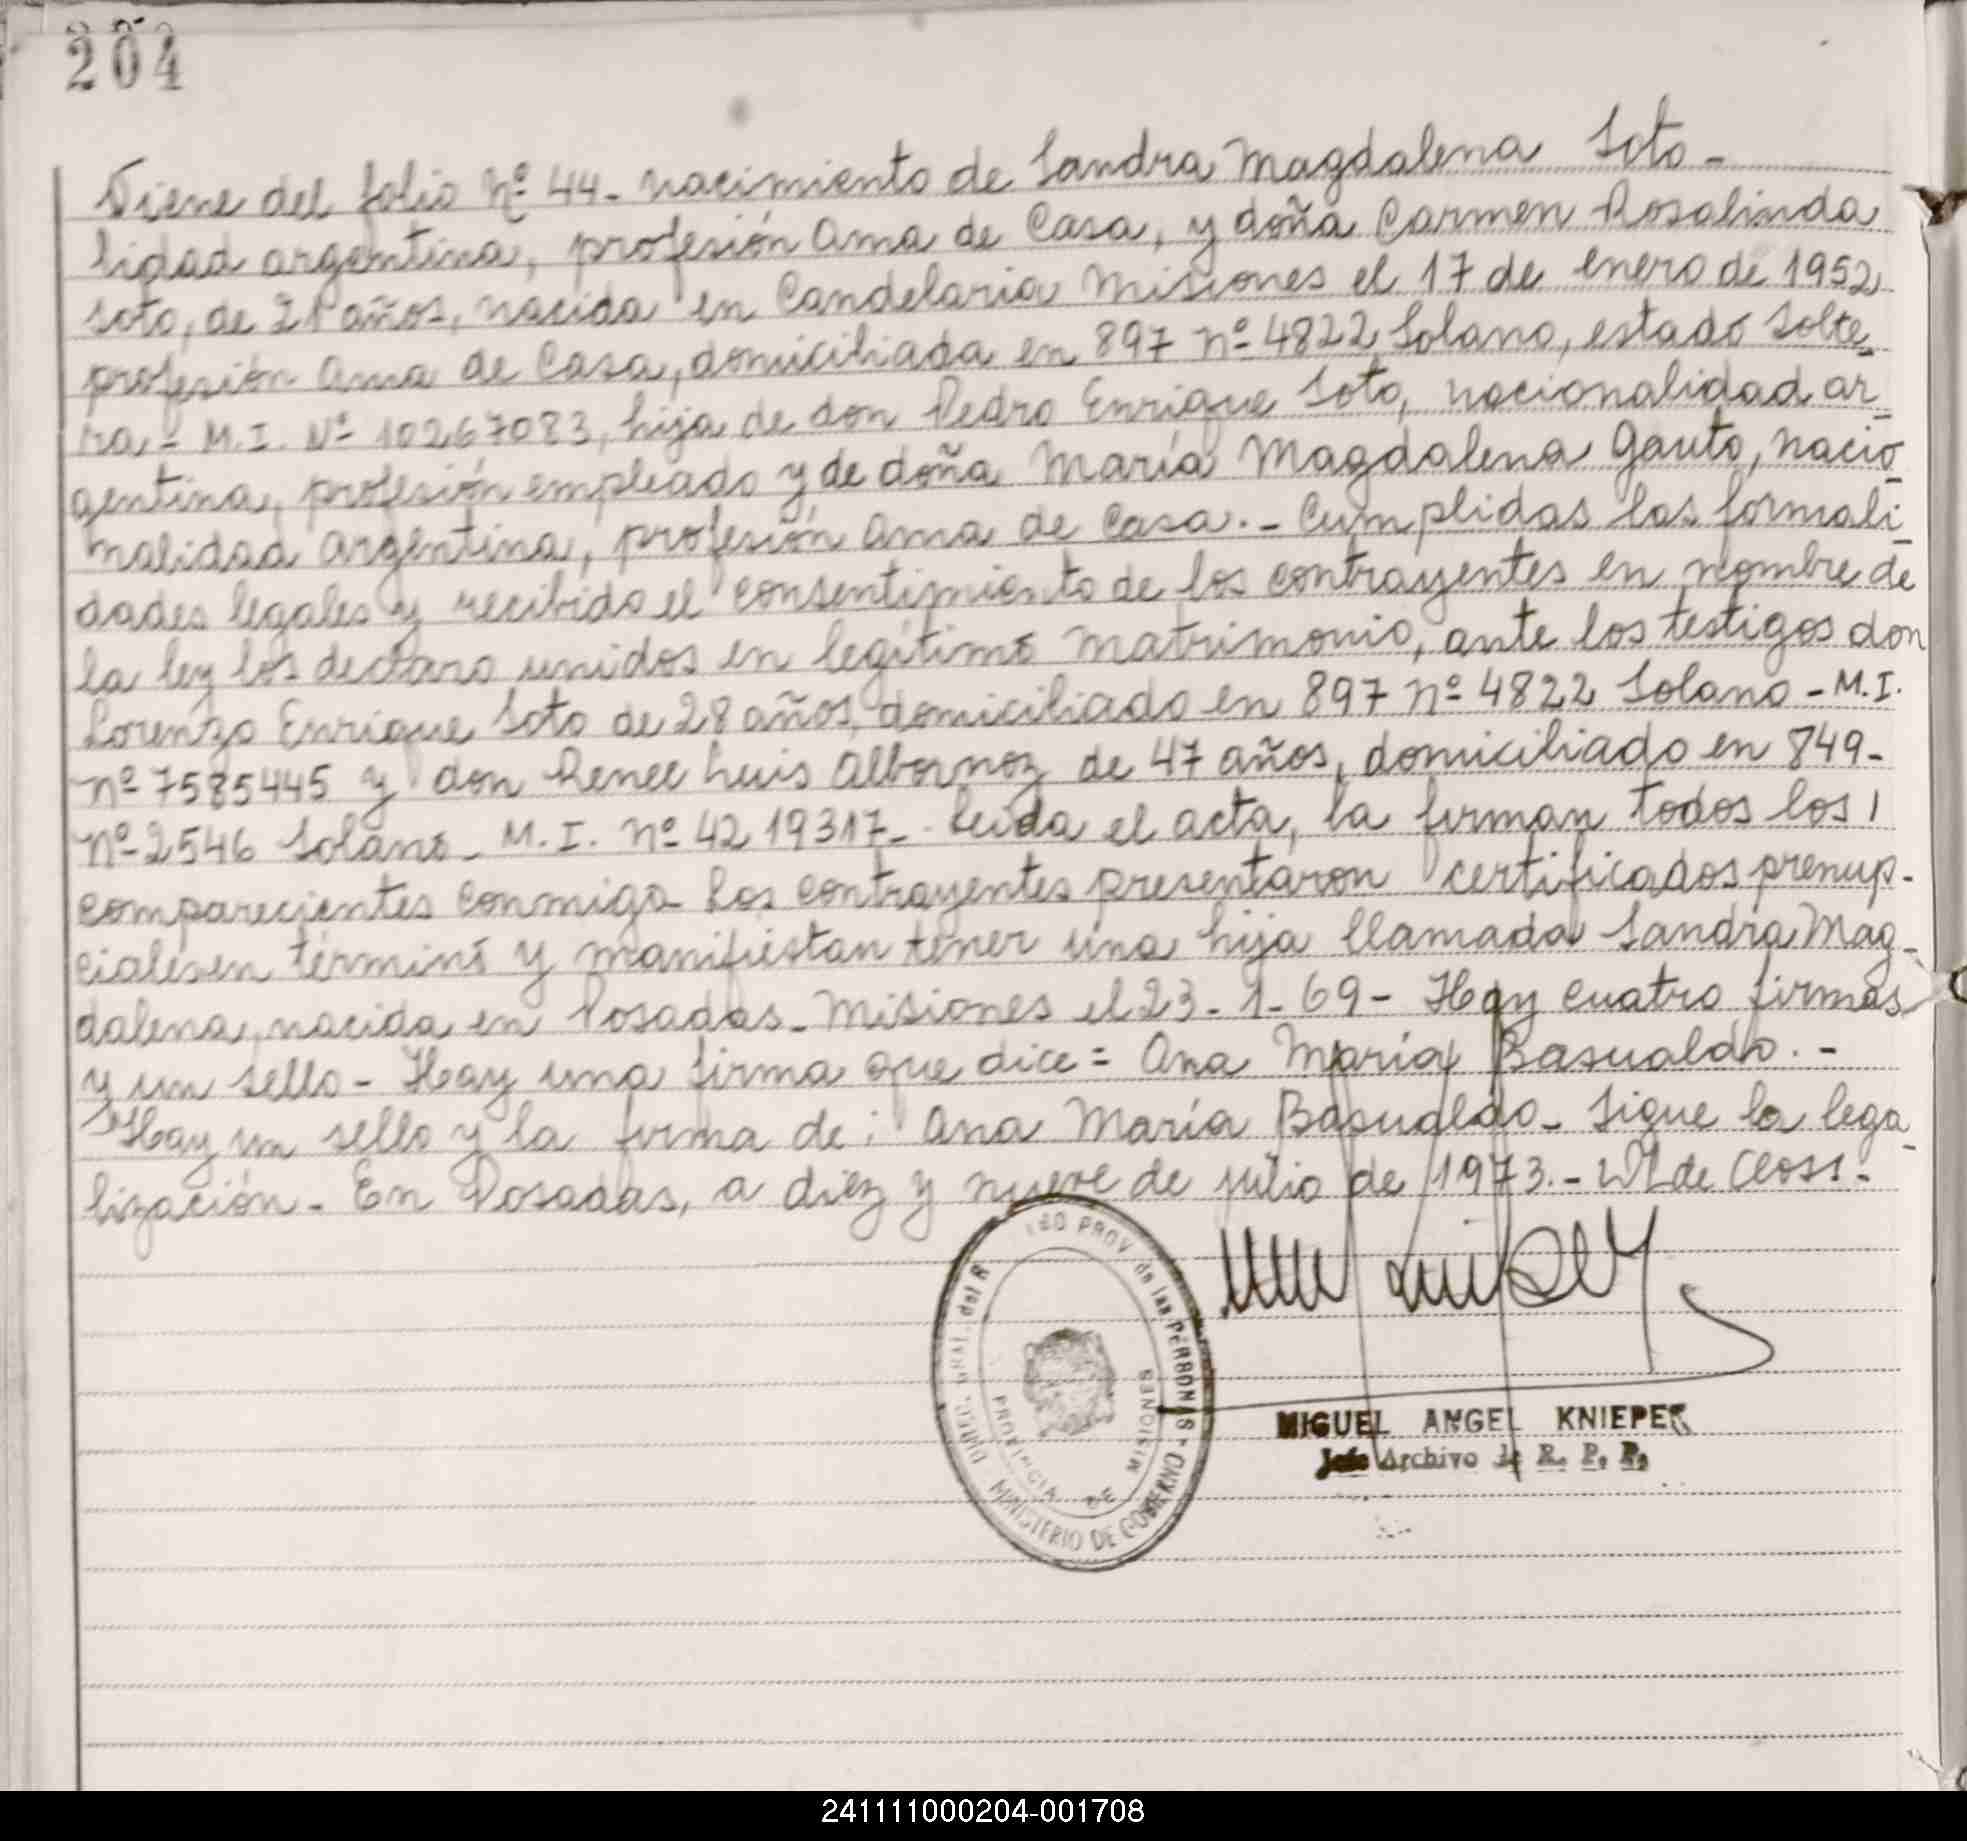 204
Viene del folio Nº 44- nacimiento de Sandra Magdalena Soto-
lidad argentina, profesión ama de Casa, y doña Carmen Rosalinda
Soto, de 21 años, nacida en Candelaria Misiones el 17 de enero de 1952
profesión ama de Casa, domiciliada en 897 Nº 4822 Solano, estado Solte-
ra- M.I. Nº 10267083, hija de don Pedro Enrique Soto, nacionalidad ar-
gentina, profesión empleado y de doña María Magdalena Gauto, nacio-
nalidad argentina, profesión ama de Casa.- Cumplidas las formali-
dades legales y recibido el consentimiento de los contrayentes en nombre de
la ley los declaro unidos en legítimo matrimonio, ante los testigos don
Lorenzo Enrique Soto de 28 años, domiciliado en 897 Nº 4822 Solano - M.I.
Nº 7585445 y don Renee Luis Albornoz de 47 años, domiciliado en 849-
Nº 2546 Solano- M.I. Nº 4219317- Leida el acta, la firman todos los
comparecientes conmigo- Los contrayentes presentaron certificados prenup-
ciales en término y manifiestan tener una hija llamada Sandra Mag-
dalena, nacida en Posadas- Misiones el 23-1-69- Hay cuatro firmas
y un sello- Hay una firma que dice= Ana María Basualdo.-
Hay un sello y la firma de: Ana María Basualdo- Sigue la lega-
lización- En Posadas, a diez y nueve de julio de 1973.- de Closs.-
PROV. de las PERSONAS - MINISTERIO DE GOBIERNO
PROVINCIA DE MISIONES
MIGUEL ANGEL KNIEPER
Jefe Archivo de R. P. P.
241111000204-001708